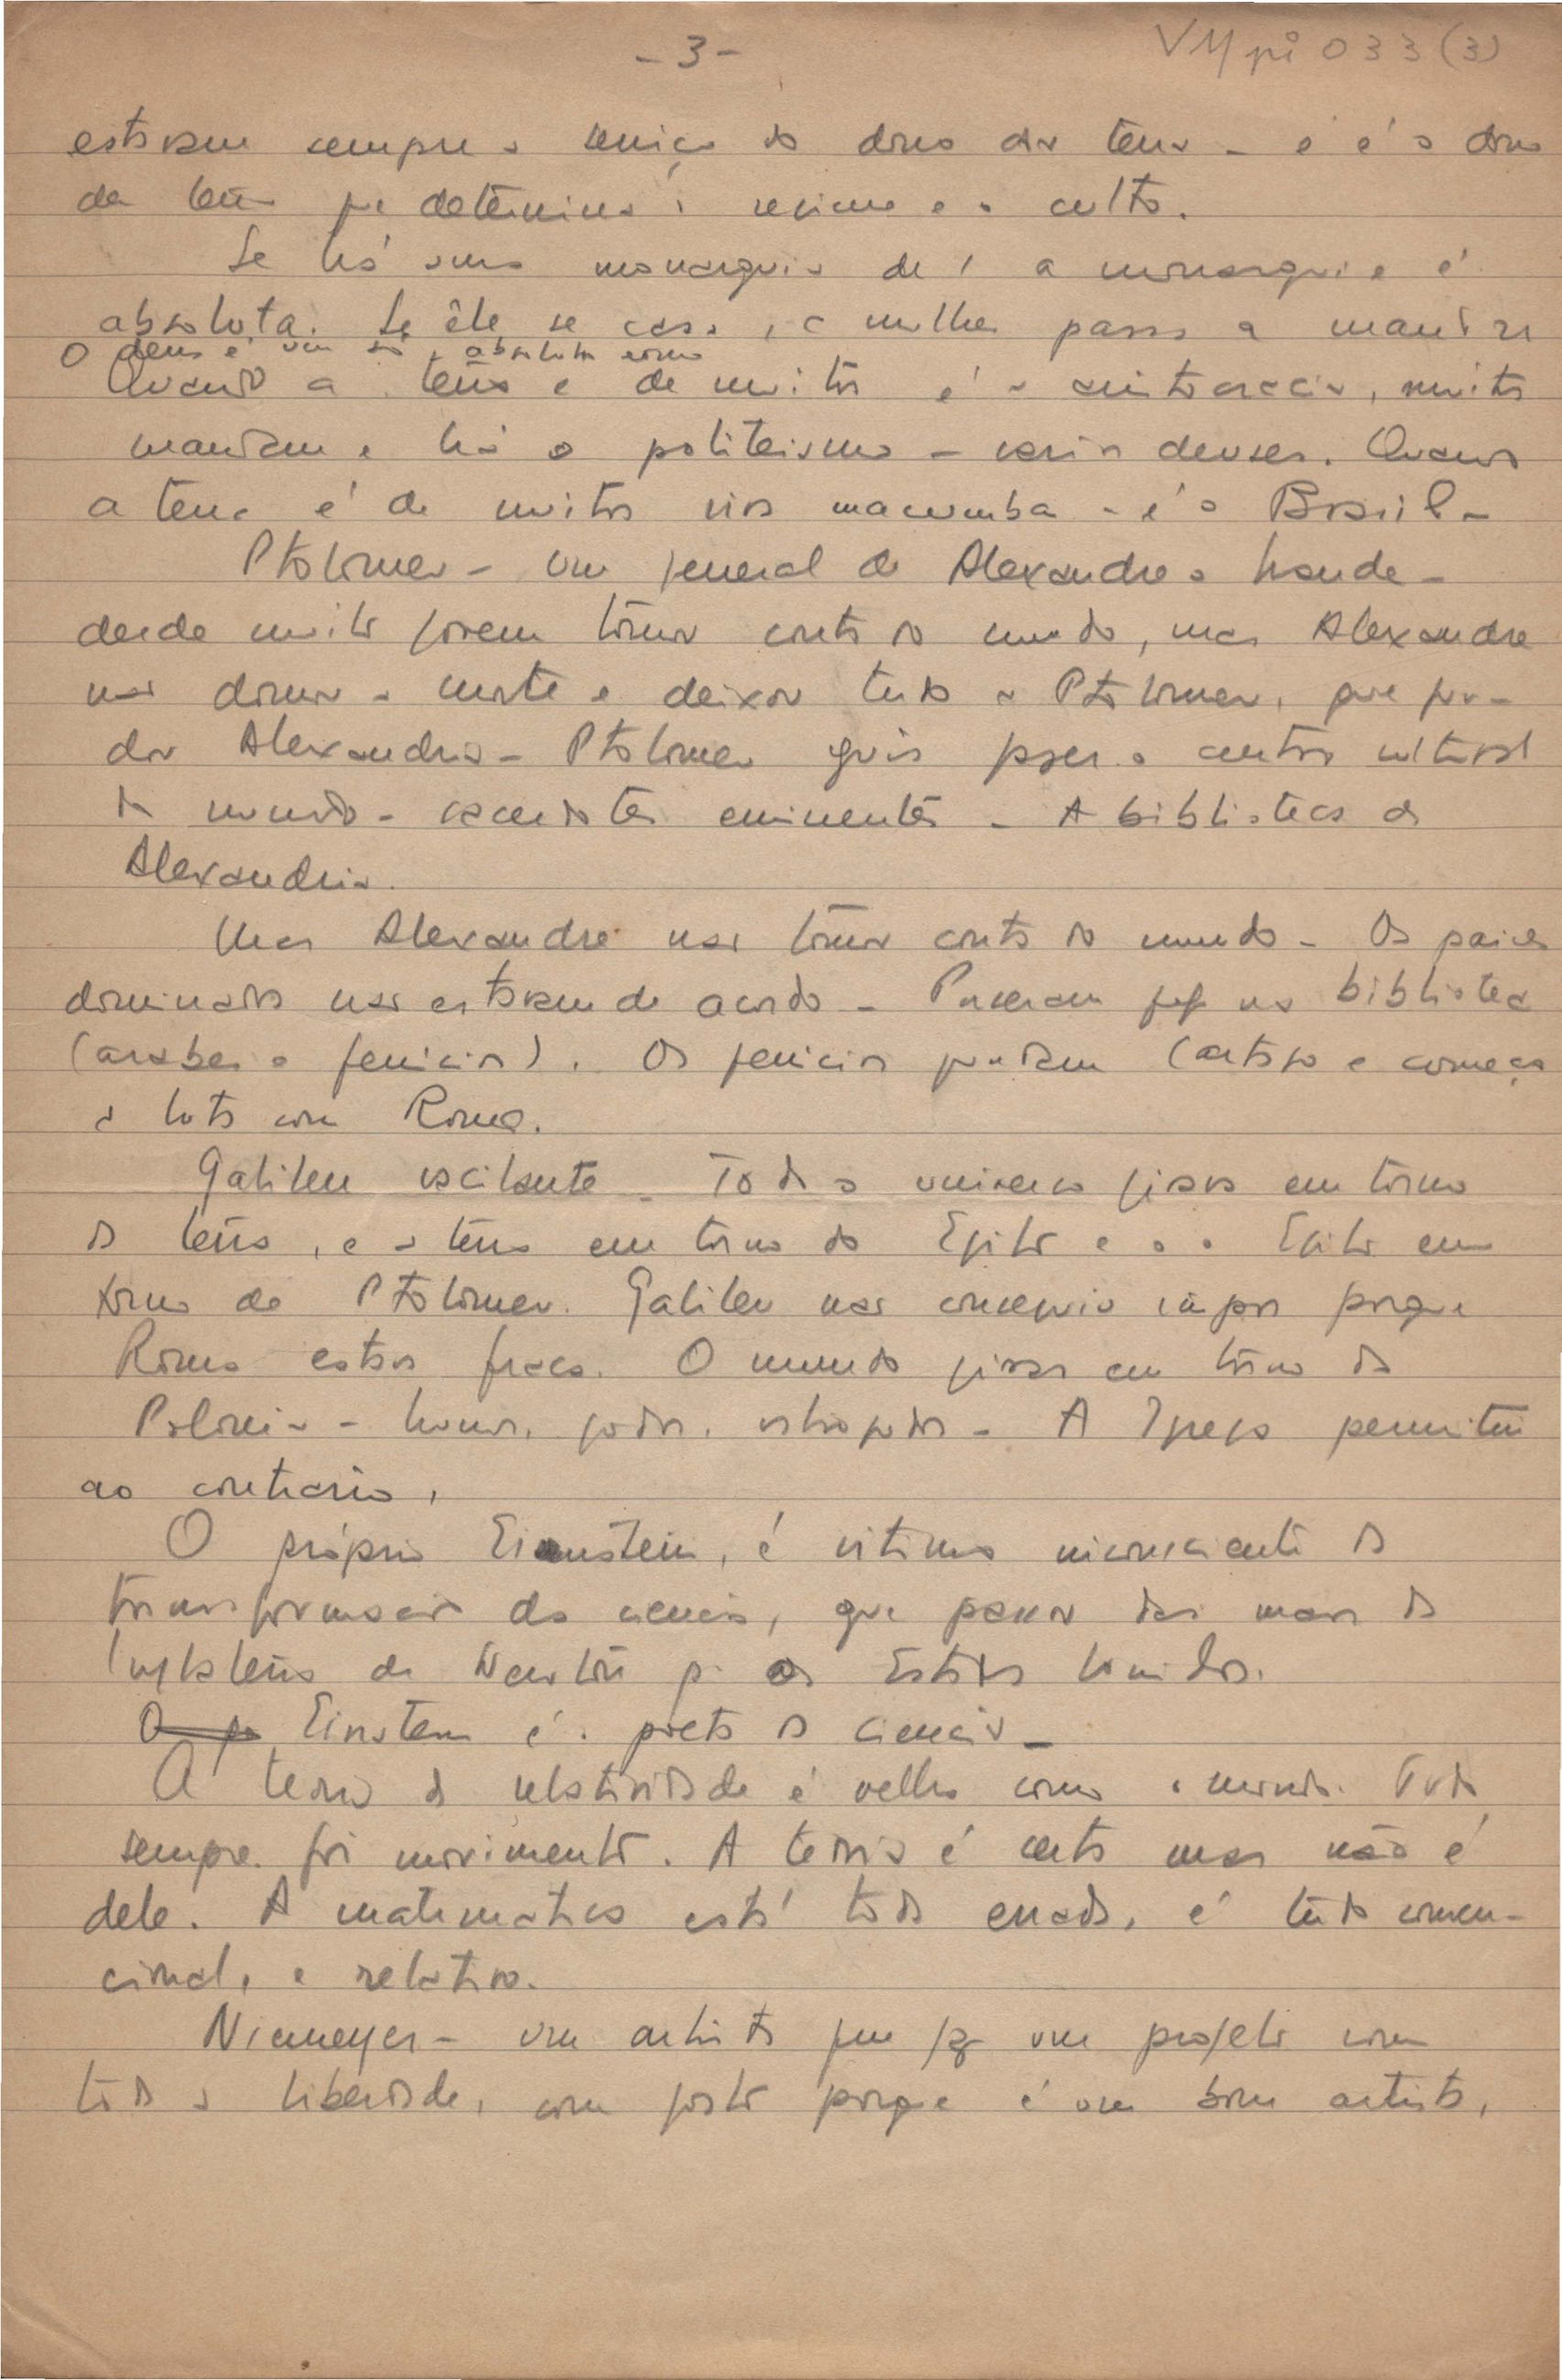 - 3 -
VM pi 033 (3)
estavam sempre a serviço do dono da terra - e é o dono
da terra que determina o regime e o culto.
Se há uma monarquia de 1 a monarquia é
absoluta. Se êle se casa, a mulher passa a mandar
O deus é um só, absoluto como
Quando a terra é de muitos é a aristocracia, muitos
mandam e há o politeismo - varios deuses. Quando
a terra é de muitos vira macumba - é o Brasil -
Ptolomeu - um general de Alexandre o Grande -
desde muito jovem tomou conta do mundo, mas Alexandre
não domou a morte e deixou tudo a Ptolomeu, que fun-
dou Alexandria - Ptolomeu quis fazer o centro cultural
do mundo - sacerdotes eminentes - A biblioteca de
Alexandria.
Mas Alexandre não tomou conta do mundo - Os paises
dominados não estavam de acordo - Puseram fogo na biblioteca
(arabes e fenicios). Os fenicios fundam Cartago e começa
a luta com Roma.
Galileu vacilante - Todo o universo girava em torno
da terra, e a terra em torno do Egito e o Egito em
torno de Ptolomeu. Galileu não conseguiu impor porque
Roma estava fraca. O mundo girava em tôrno da
Polonia - hunos, godos, ostrogodos - A Igreja permitiu
ao contrario,
O próprio Einstein, é vitima inconsciente da
transformação da ciencia, que passou das mãos da
Inglaterra de Newton p. os Estados Unidos.
Einstein é o poeta da ciencia -
A teoria da relatividade é velha como o mundo. Tudo
sempre foi movimento. A teoria é certa mas não é
dele. A matematica está toda errada, é tudo conven-
cional, e relativo.
Niemeyer - um artista que faz um projeto com
toda a liberdade, com gosto porque é um bom artista,